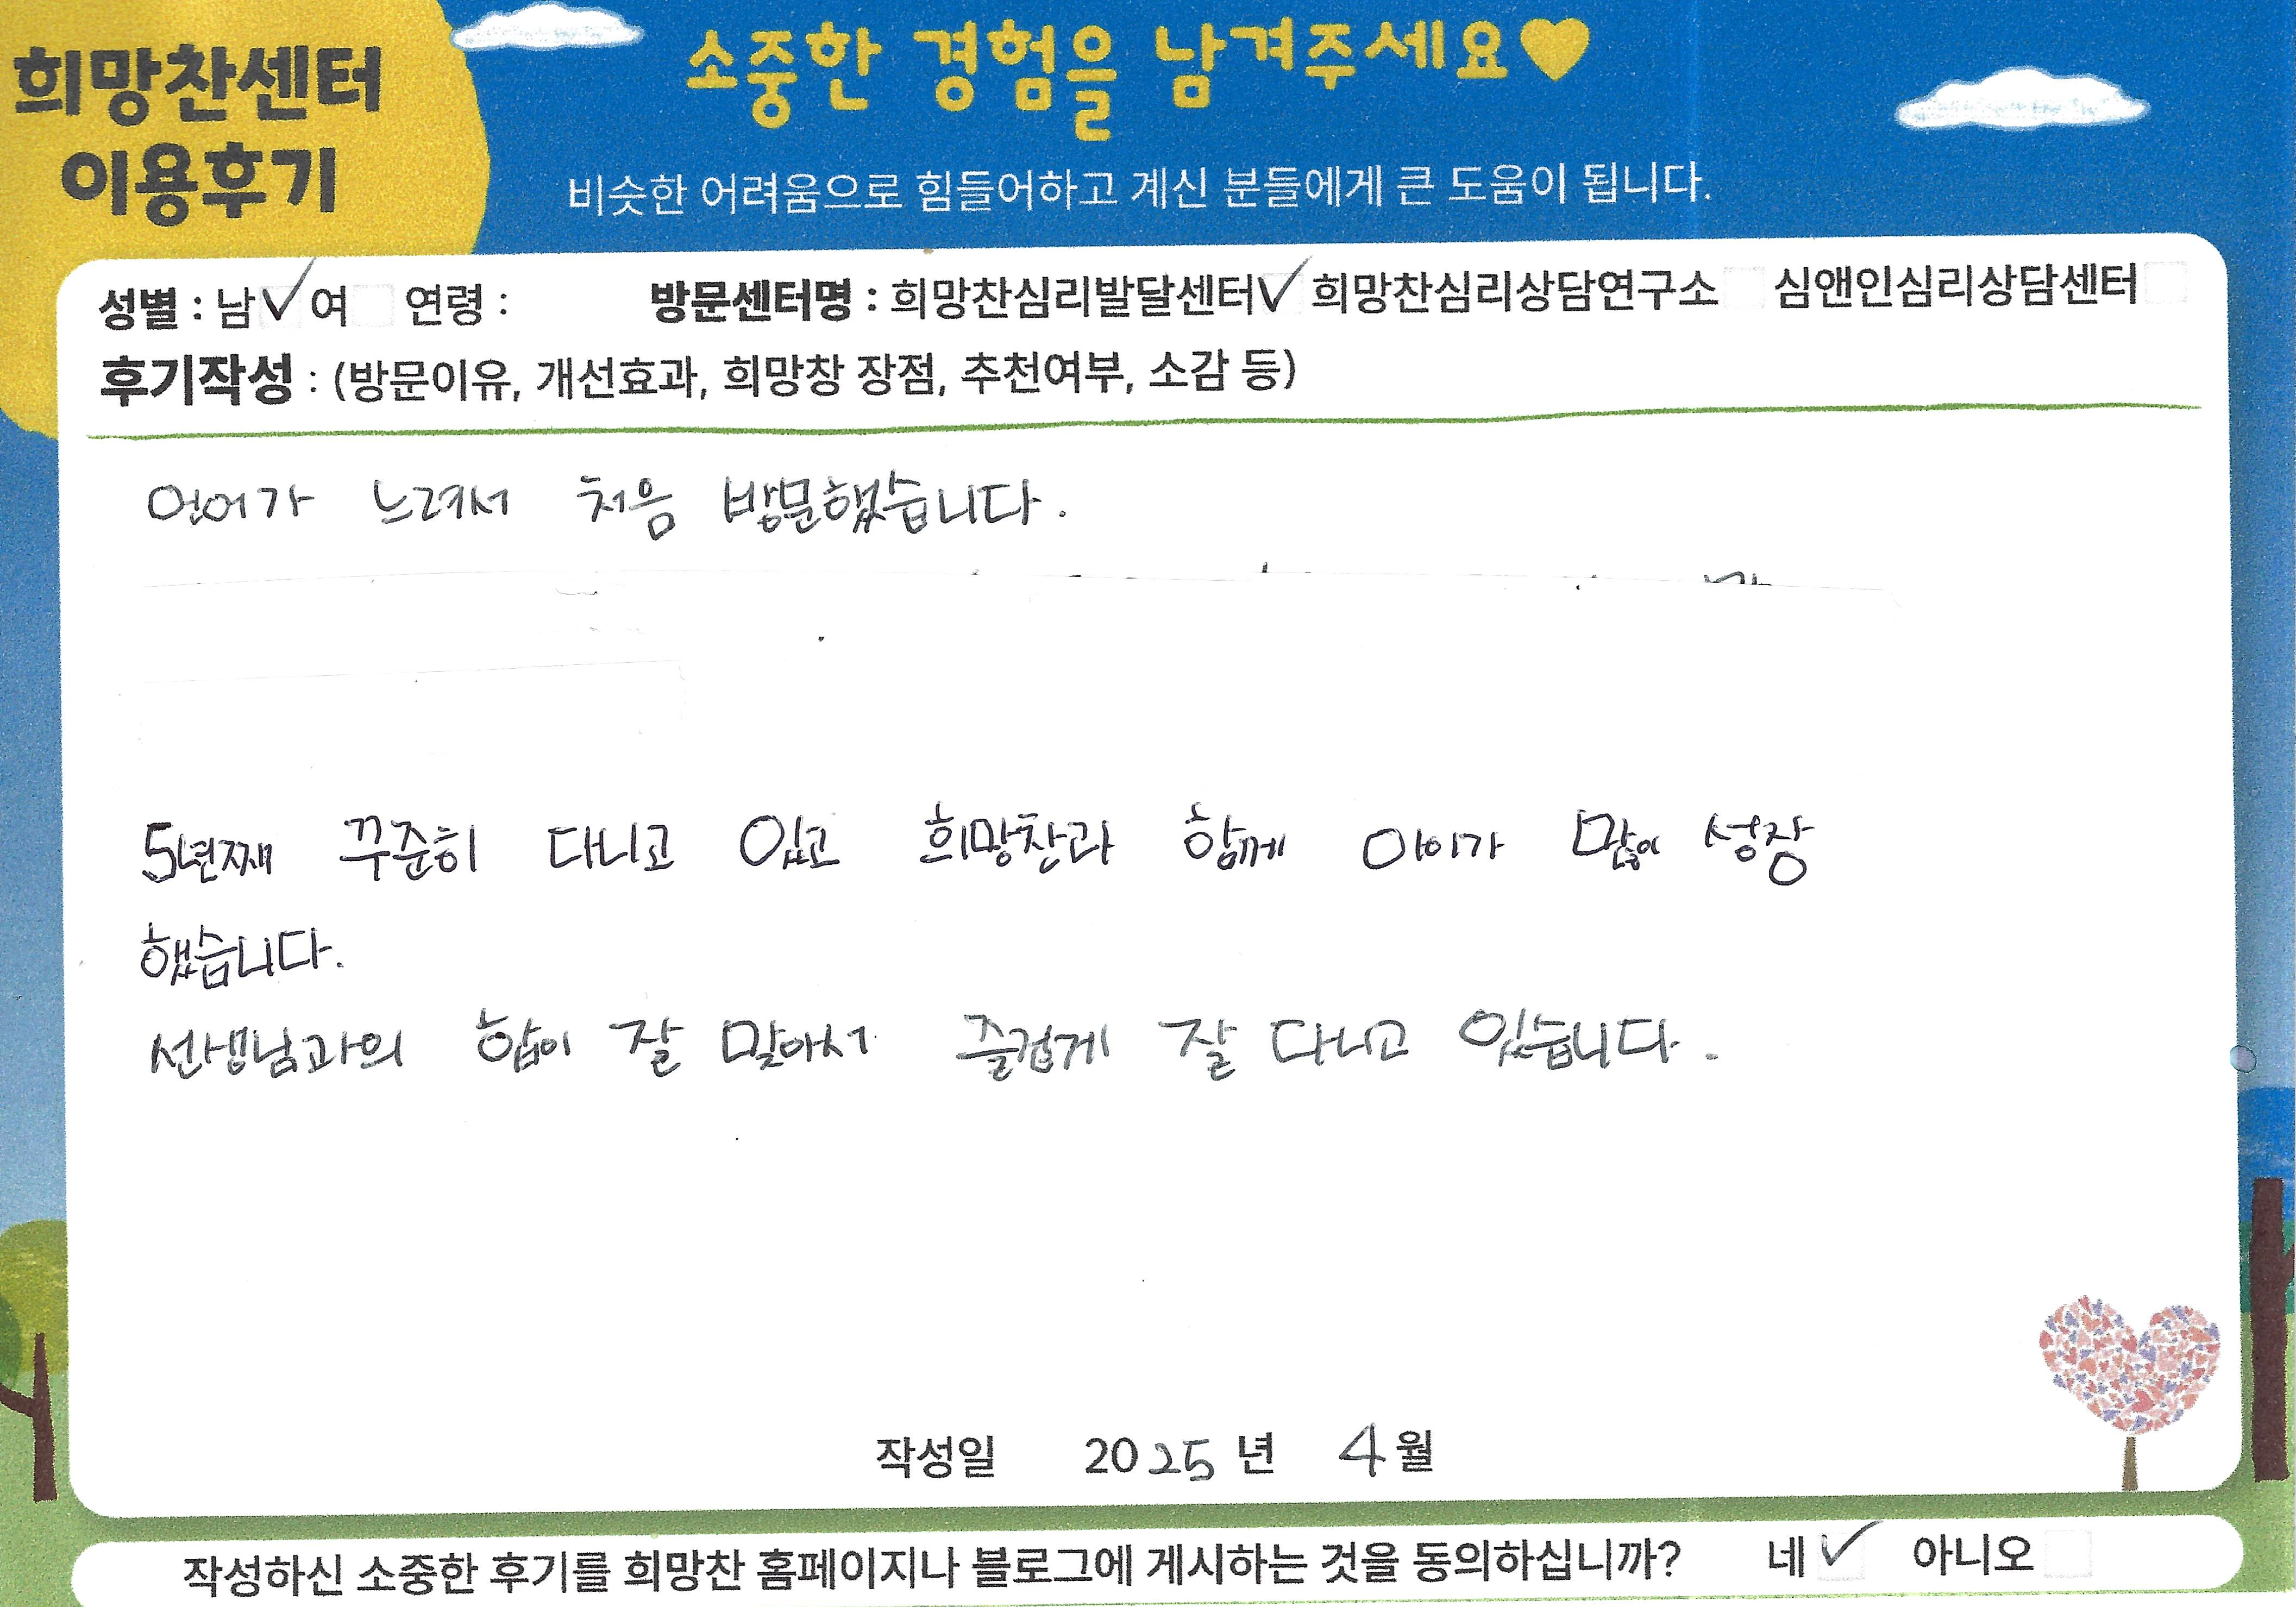 희망찬센터
이용후기
소중한 경험을 남겨주세요♥
비슷한 어려움으로 힘들어하고 계신 분들에게 큰 도움이 됩니다.
성별 : 남✓ 여 연령 : 방문센터명 : 희망찬심리발달센터✓ 희망찬심리상담연구소 심앤인심리상담센터
후기작성 : (방문이유, 개선효과, 희망창 장점, 추천여부, 소감 등)
언어가 느려서 처음 방문했습니다.
5년째 꾸준히 다니고 있고 희망찬과 함께 아이가 많이 성장
했습니다.
선생님과의 합이 잘 맞아서 즐겁게 잘 다니고 있습니다.
작성일 2025년 4월
작성하신 소중한 후기를 희망찬 홈페이지나 블로그에 게시하는 것을 동의하십니까? 네✓ 아니오